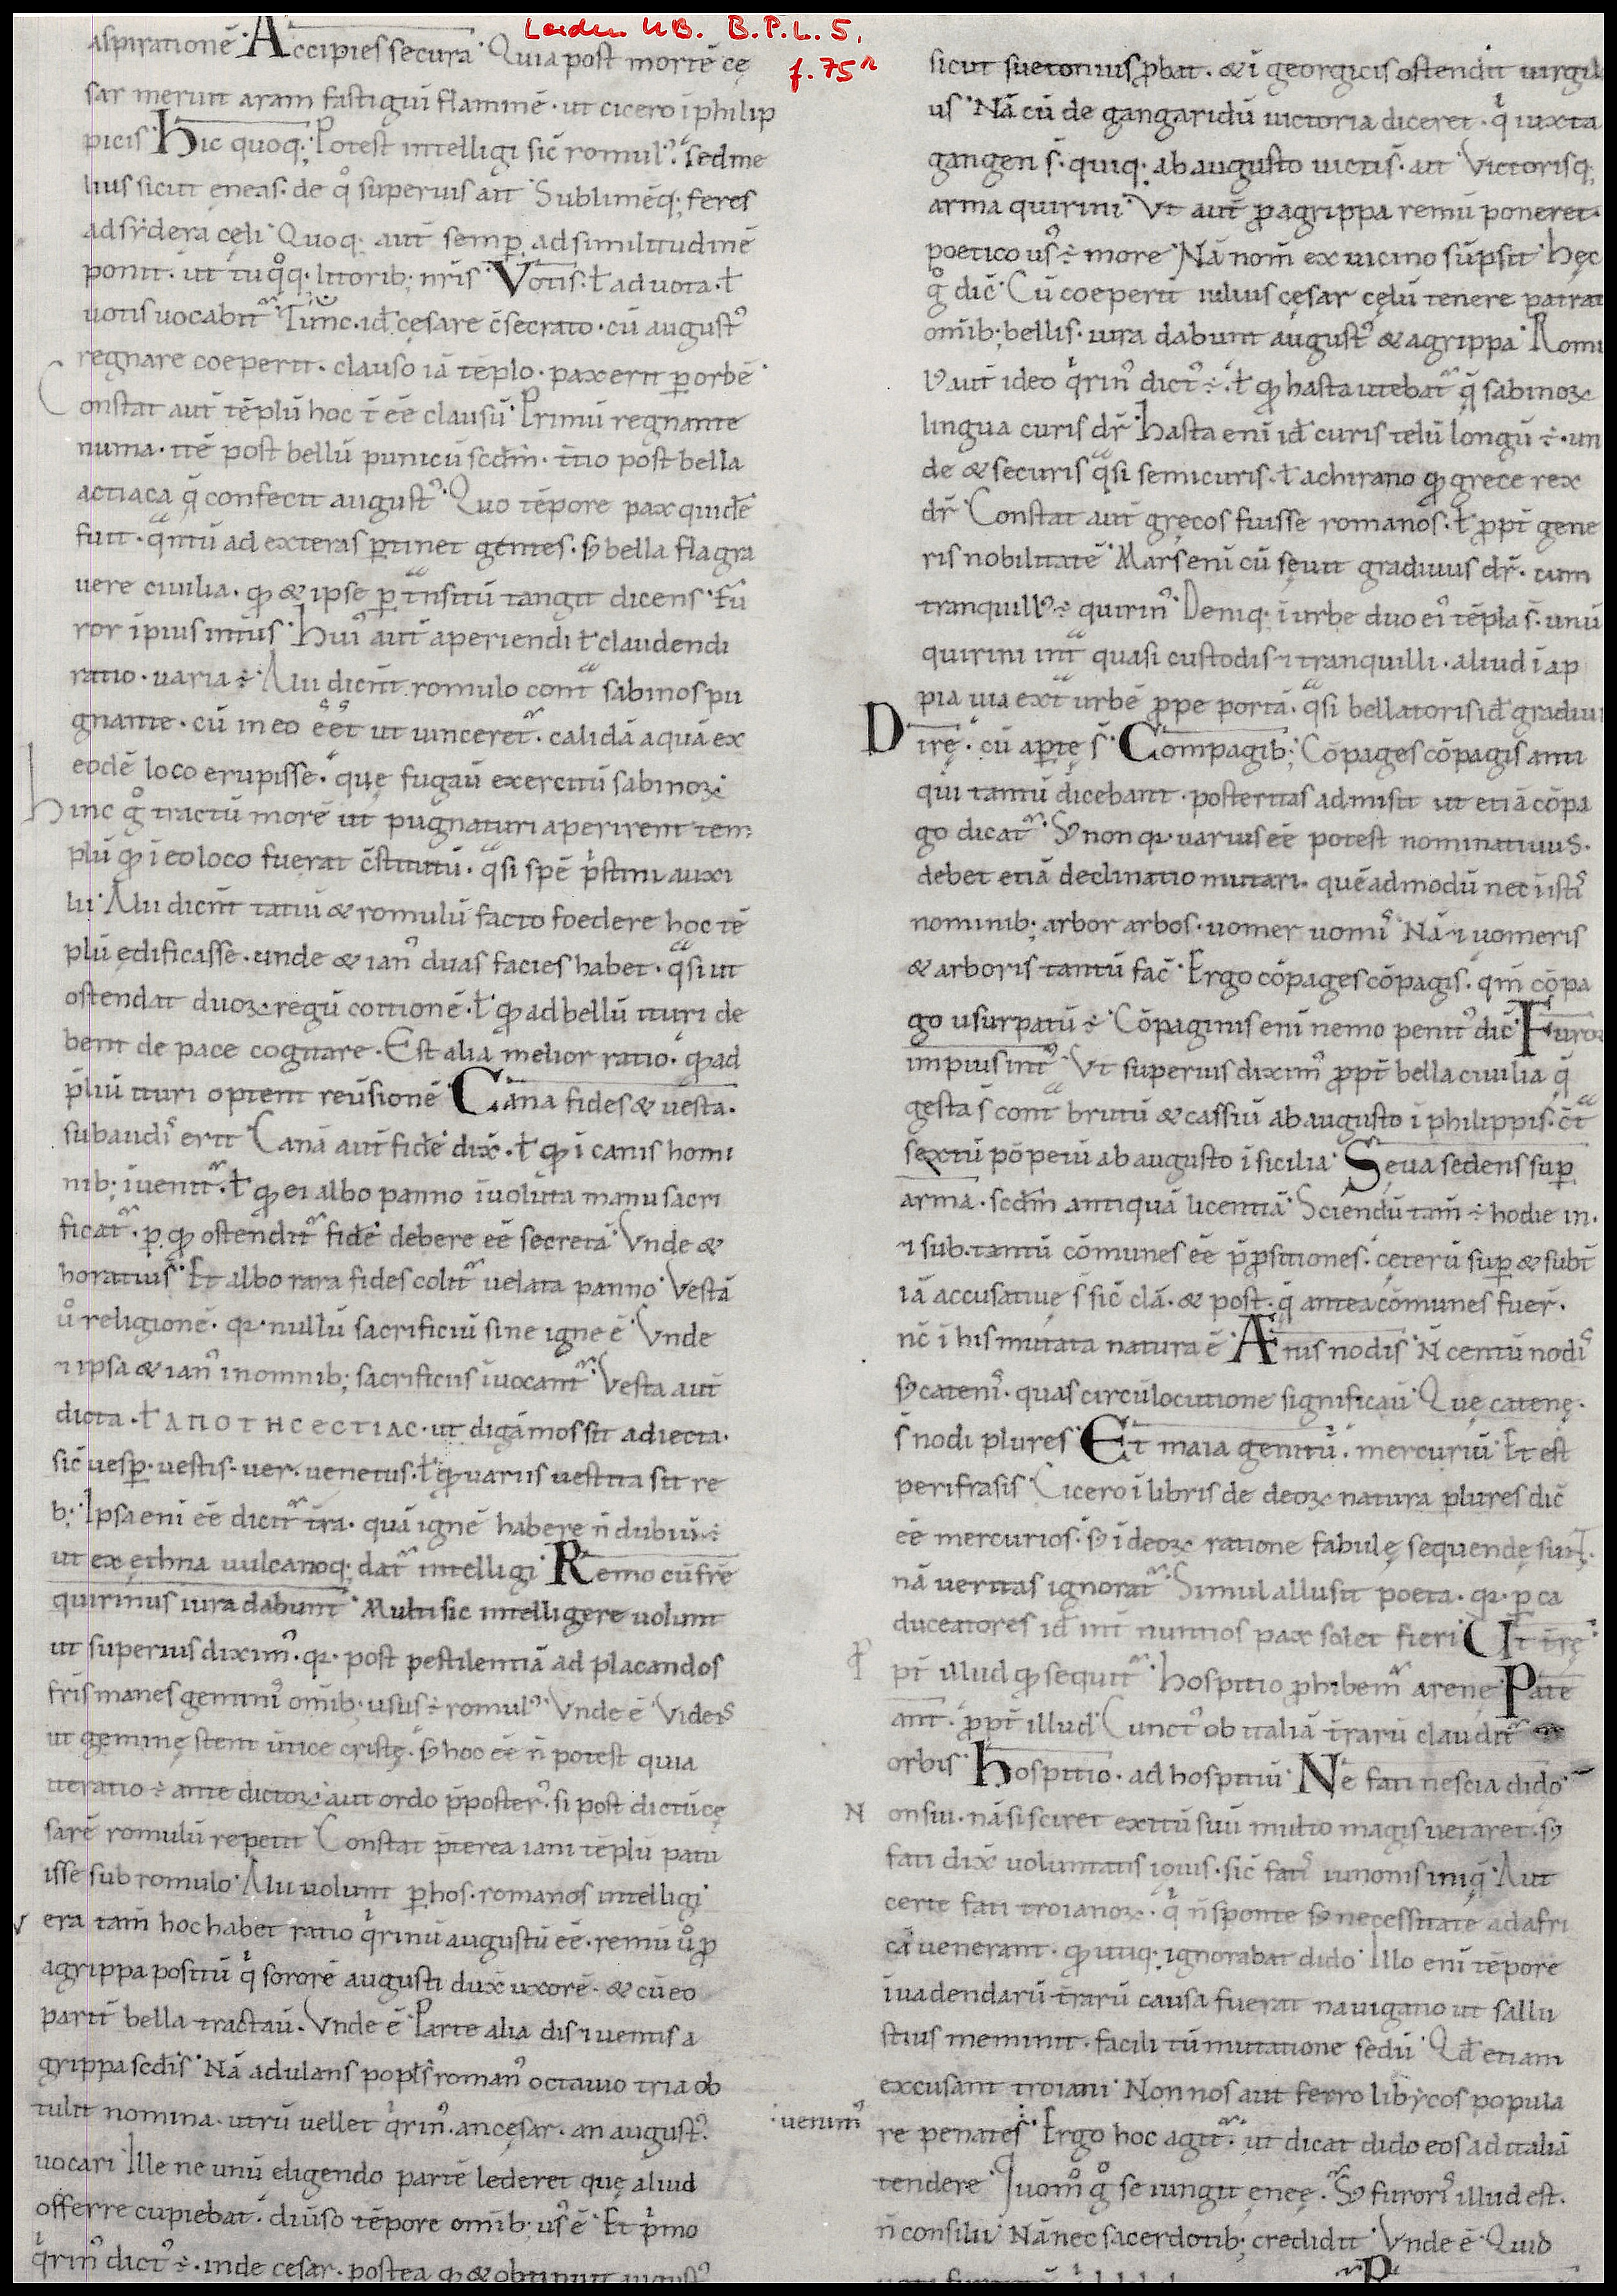 Leiden UB. B.P.L. 5,
f. 75r
aspirationē Accipies secura Quia post mortē cę
sar meruit aram fastigiū flaminē · ut cicero ī philip
picis Hic quoq; Potest intelligi sic̄ romul᷒ · sed me
lius sicut ęneas · de q̊ superius ait Sublimēq; feres
ad sẏdera cęli Quoq; aut̄ semp̲ ad similitudinē
ponit · ut tu q̊q · litorib; nr̄is Votis · ł ad uota · ł
uotis uocabit᷑ Tunc · id̄ cęsare c̄secrato · cū august᷒
regnare coeperit · clauso iā tēplo · pax erit p̲ orbē
Constat aut̄ tēplū hoc t̄ eē clausū Primū regnante
numa · itē post bellū punicū scd̄m · t̄tio post bella
actiaca q̄ confecit august᷒ Quo tēpore pax quidē
fuit · qᵃntū ad exteras p̲tinet gentes · s; bella flagra
uere ciuilia · qđ & ipse p̲ tᵃnsitū tangit dicens Fu
ror īpius intus Hui᷒ aut̄ aperiendi ł claudendi
ratio · uaria ÷ Alii dicn̄t romulo contᵃ sabinos pu
gnante · cū in eo eēt ut uinceret᷑ · calidā aquā ex
eodē loco erupisse · quę fugaū exercitū sabinoꝝ
hinc g̊ tractū morē ut pugnaturi aperirent tem
plū qđ ī eo loco fuerat c̄stitutū · qᵃsi spē pⁱstini auxi
lii Alii dicn̄t tatiū & romulū facto foedere hoc tē
plū ędificasse · unde & ian᷒ duas facies habet · qᵃsi ut
ostendat duoꝝ regū coitionē · ł qđ ad bellū ituri de
bent de pace cogitare · Est alia melior ratio · qđ ad
p̄liū ituri optent reūsionē Cana fides & uesta ·
subaudi᷒ erit Canā aut̄ fidē dix̄ · ł qđ ī canis homi
nib; īuenit᷑ · ł qđ ei albo panno īuoluta manu sacri
ficat᷑ · p̲ qđ ostendit᷑ fidē debere eē secretā Vnde &
horatius Et albo rara fides colit᷑ uelata panno Vestā
ů religionē · quia nullū sacrificiū sine igne ē Vnde
⁊ ipsa & ian᷒ in omnib; sacrificiis īuocant᷑ Vesta aut̄
dicta · ł ΑΠΟΤΗCΕCΤΙΑC · ut digāmos sit adiecta ·
sic̄ uesp̲ · uestis · uer · uenetus · ł qđ uariis uestita sit re
b; Ipsa eni eē dicit᷑ t̄ra · quā ignē habere n̄ dubiū ÷
ut ex ęthna uulcanoq; dat᷑ intelligi Remo cū fr̄e
quirinus iura dabunt Multi sic intelligere uolunt
ut superius dixim᷒ · quia post pestilentiā ad placandos
fr̄is manes gemini᷒ om̄ib; usus ÷ romul᷒ Vnde ē Viden᷒
ut geminę stent ūtice cristę · s; hoc eē n̄ potest quia
iteratio ÷ ante dictoꝝ aut ordo p̄poster᷒ · si post dictū cę
sarē romulū repetit Constat p̄terea iani tēplū patu
isse sub romulo Alii uolunt p̲ hos · romanos intelligi
Vera tam̄ hoc habet ratio qⁱrinū augustū eē · remū ů p
agrippa positū qⁱ sororē augusti dux̄ uxorē · & cū eo
parit̄ bella tractaū · Vnde ē Parte alia dis ⁊ uentis a
grippa scd̄is Nā adulans popl̄s roman᷒ octauio tria ob
tulit nomina · utrū uellet qⁱrin᷒ · an cęsar · an august᷒
uocari Ille ne unū eligendo partē lederet quę aliud
offerre cupiebat · diūso tēpore om̄ib; us᷒ ē Et pⁱmo
qⁱrin᷒ dict᷒ ÷ · inde cesar · postea qđ & obtinuit august᷒
sicut suetonius p̱bat · & ī georgicis ostendit uirgili
us Nā cū de gangaridū uictoria diceret · qⁱ iuxta
gangen s̄ · quiq; ab augusto uicti s̄ · ait Victorisq;
arma quirini Vt aut̄ p agrippa remū poneret ·
poetico us᷒ ÷ more Nā nom̄ ex uicino sūpsit Hęc
g̊ dic̄ Cū coeperit iulius cęsar cęlū tenere patrat
om̄ib; bellis · iura dabunt august᷒ & agrippa Romu
l᷒ aut̄ ideo qⁱrin᷒ dict᷒ ÷ · ł qđ hasta utebat᷑ q̄ sabinoꝝ
lingua curis dr̄ Hasta eni id̄ curis telū longū ÷ · un
de & securis qᵃsi semicuris · ł achirano qđ gręce rex
dr̄ Constat aut̄ gręcos fuisse romanos · ł p̱pt̄ gene
ris nobilitatē Mars eni cū sęuit gradiuus dr̄ · cum
tranquill᷒ ÷ quirin᷒ Deniq; ī urbe duo ei᷒ tēpla s̄ · unū
quirini intᵃ quasi custodis ⁊ tranquilli · aliud ī ap
pia uia extᵃ urbē p̱pe portā · qᵃsi bellatoris id̄ gradiui
Dirę · cū ap̲te s̄ Compagib; Cōpages cōpagis anti
qui tantū dicebant · posteritas admisit ut etiā cōpa
go dicat᷑ · S; non quia uarius eē potest nominatiuus ·
debet etiā declinatio mutari · quēadmodū nec īisti᷒
nominib; arbor arbos · uomer uomi᷒ Nā ⁊ uomeris
& arboris tantū fac̄ Ergo cōpages cōpagis · qm̄ cōpa
go usurpatū ÷ Cōpaginis eni nemo penit᷒ dic̄ Furor
impius int᷒ Vt superius dixim᷒ p̱pt̄ bella ciuilia q̄
gesta s̄ contᵃ brutū & cassiū ab augusto ī philippis · c̄tᵃ
sextū pōpeiū ab augusto ī sicilia Seua sedens sup̲
arma · scd̄m antiquā licentiā Sciendū tam̄ ÷ hodie in ·
⁊ sub · tantū cōmunes eē p̄positiones · cęterū sup̲ & subt̄
iā accusatiuę s̄ sic̄ clā · & post · q̄ antea cōmunes fuer̄ ·
nc̄ ī his mutata natura ē Atnis nodis N̄ centū nodi᷒
s; cateni᷒ · quas circūlocutione significaū Que catenę ·
s̄ nodi plures Et maia genitū · mercuriū Et est
perifrasis Cicero ī libris de deoꝝ natura plures dic̄
eē mercurios · s; ī deoꝝ ratione fabulę sequendę sunt ·
nā ueritas ignorat᷑ Simul allusit poeta · quia p̲ ca
duceatores id̄ int̄ nuntios pax solet fieri Vt t̄rę
p̱pt̄ illud qđ sequit᷑ Hospitio p̱hibem᷑ arene Pate
ant · p̱pt̄ illud Cunct᷒ ob italiā t̄rarū claudit᷑
orbis Hospitio · ad hospitiū Ne fati nescia dido
Non suī · nā si sciret exitū suū multo magis uetaret · s;
fati dix̄ uoluntatis iouis · sic̄ fati᷒ iunonis iniq̄ Aut
certe fati troianoꝝ · qⁱ n̄ sponte s; necessitate ad afri
cā uenerant · qđ utiq; ignorabat dido Illo eni tēpore
īuadendarū t̄rarū causa fuerat nauigatio ut sallu
stius meminit · facili tū mutatione sedū Qđ etiam
excusant troiani Non nos aut ferro libẏcos popula
·uenim᷒
re penates Ergo hoc agit᷑ · ut dicat dido eos ad italiā
tendere Quom̊ g̊ se iungit ęneę · S; furori᷒ illud est ·
n̄ consilii Nā nec sacerdotib; credidit Vnde ē Quid